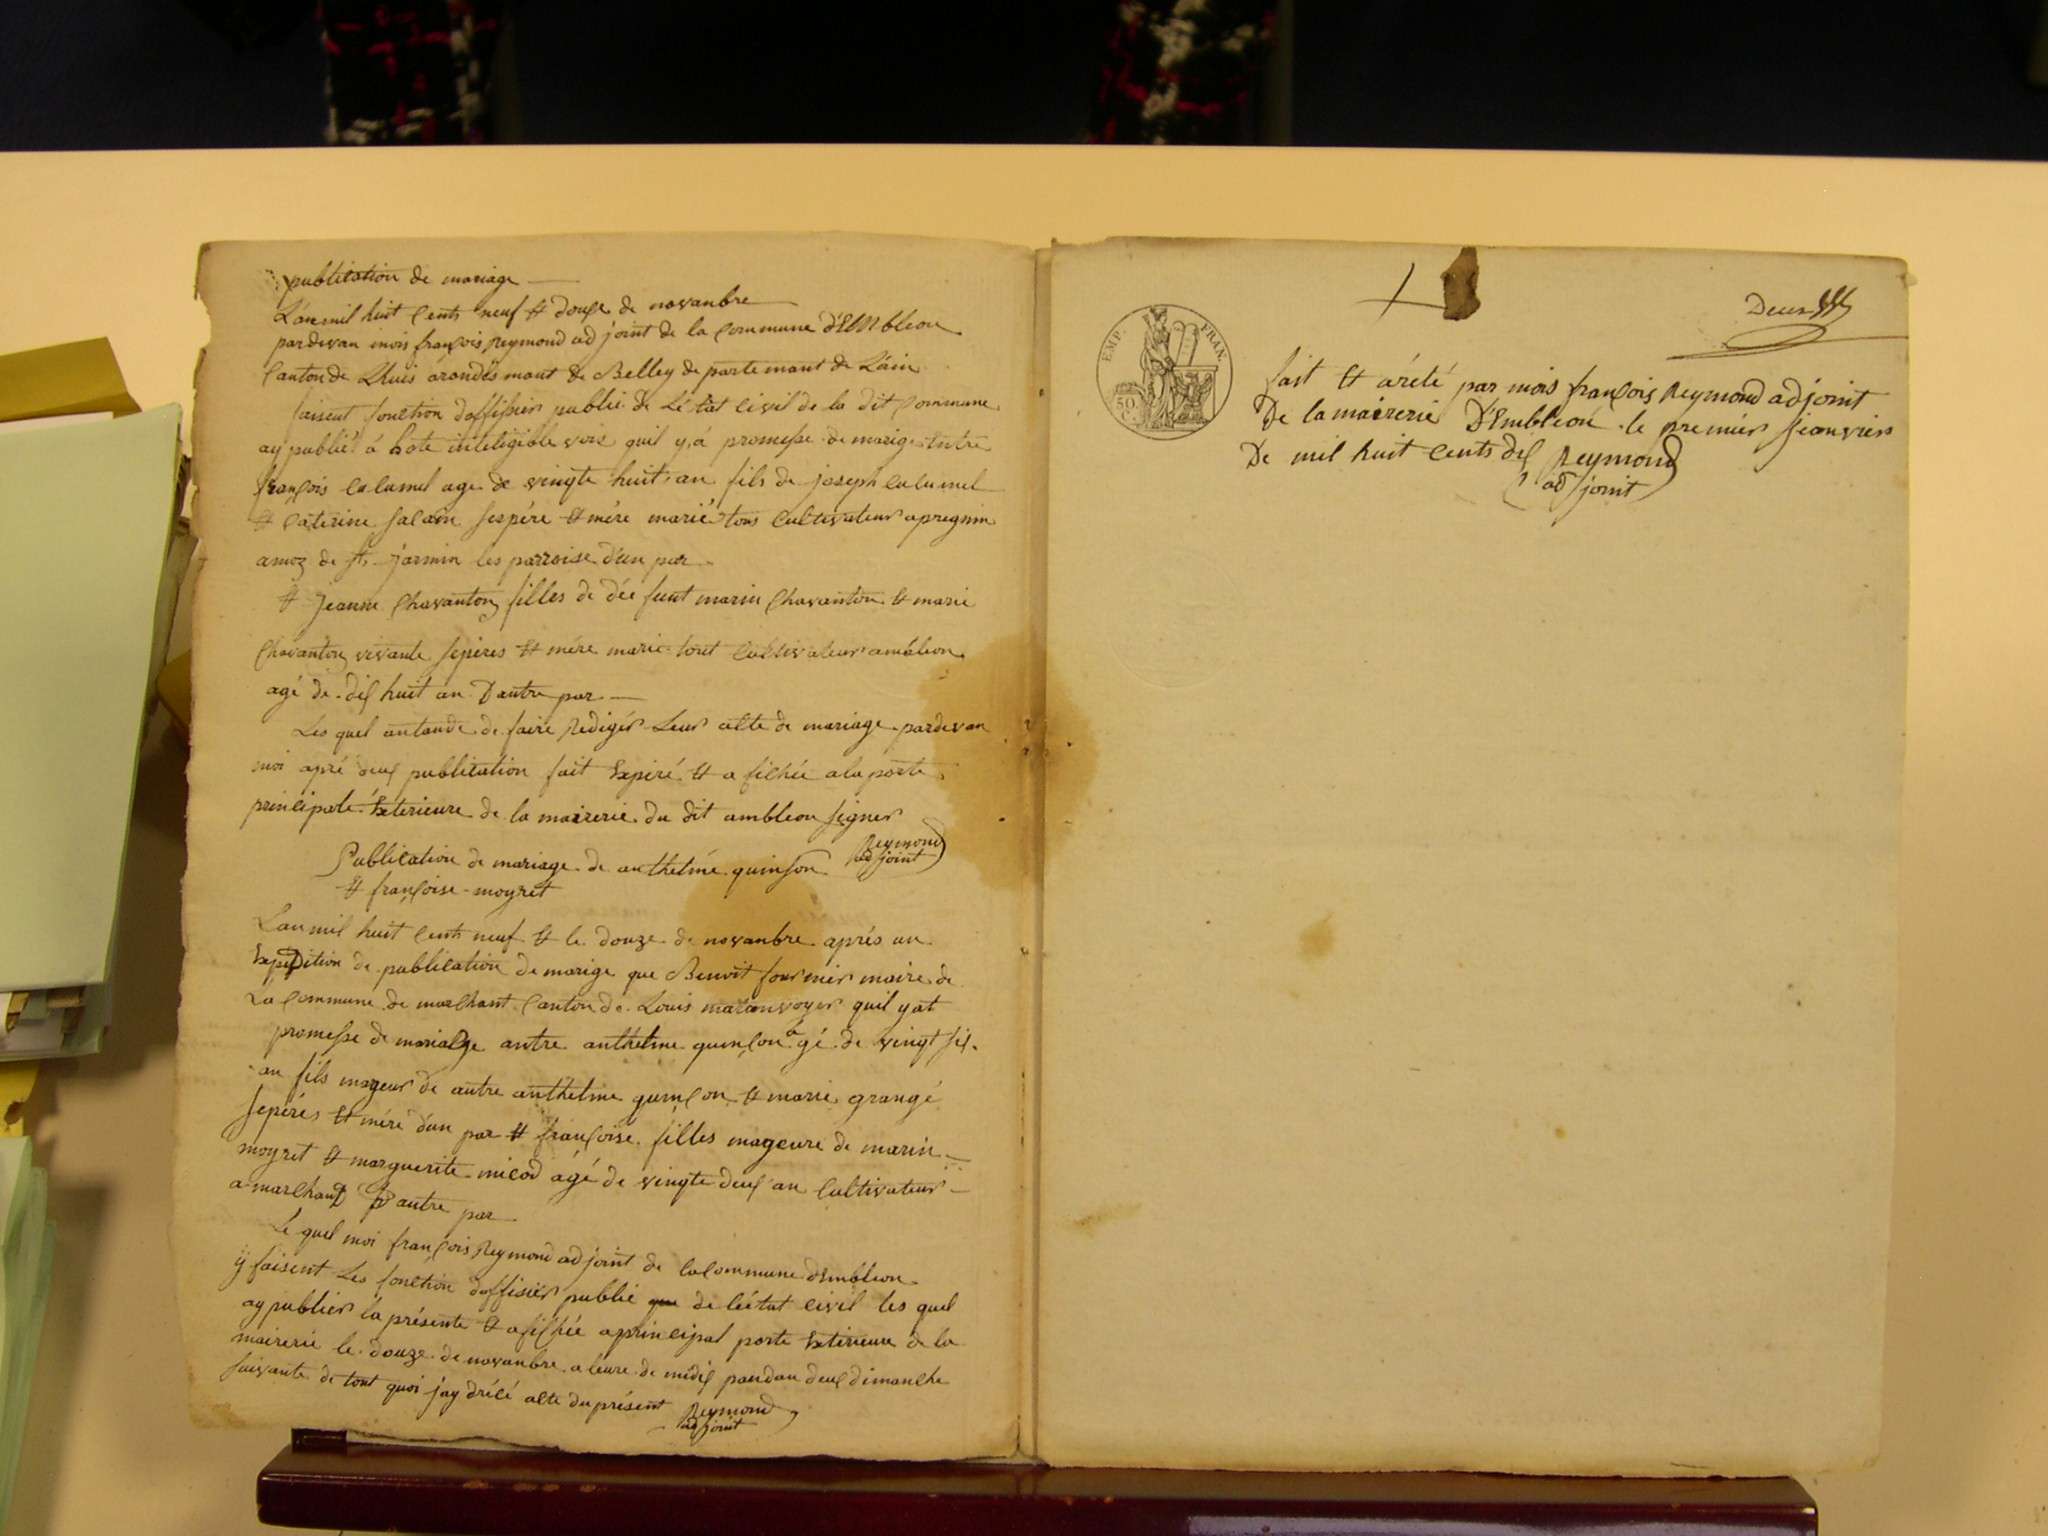 publication de mariage
L'an mil huit Cents neuf & douze de novanbre
par devan mois françois Reymond ad joint de la Commune d'EMbleon
Canton de Lhuis arondismant de Belley de parte mant de L'ain
faisent fonction d'offisier public de L'é tat civil de la dit Commune
ay publiét á hote inteligible vois quil y á promesse de marige entre
françois Calumel age de vingte huit an fils de joseph Calumel
& Caterine Salain ses pére & mére marié tous Cultivateur a pregnin
amoz de St jarmin les parroise d'un par
& Jeanne Chavanton filles de dée funt marin Chavanton & marie
Chavanton vivante ses peres & mére marie tout Cultivateur ambleon
agé de dix huit an D'autre par
Les quel antande de faire Rediger Leur alte de mariage par devan
moi apré deux publication fait Expiré & a fichée a la porte
principale Exterieure de la mairerie du dit ambleon signer
Reymond
ad joint
Publication de mariage de anthelme quinson
& françoise moyret
L'an mil huit Cents neuf & le douze de novanbre aprés un
Expedition de publication de marige que Benoit fournier maire de
La Commune de marchant Canton de Louis matanvoyer quil y at
promesse de mariage antre anthelme quinçon agé de vingt six
an fils mageur de autre anthelme quinçon & marie grangé
ses péres & mére d'un par & françoise filles mageure de marin
moyret & marguerite micod ágé de vingte deux an Cultivateur
a marchant D'autre par
Le quel moi françois Reymond ad joint de la Commune d'Embleon
ij faisent Les fonction d'offisier publie de l'éetat civil les quel
ay publier la présente & afichée a principal porte Exterieure de la
mairerie le douze de novanbre a leure de midij pandan deux dimanche
suivante de tout quoi j'ay drécé alte du présent
Reymond
ad joint
EMP. FRAN.
50 C.
Deux
fait & arété par mois françois Reymond ad joint
De la mairerie D'Embleon le premiér jeanvier
De mil huit Cents dix Reymond
ad joint